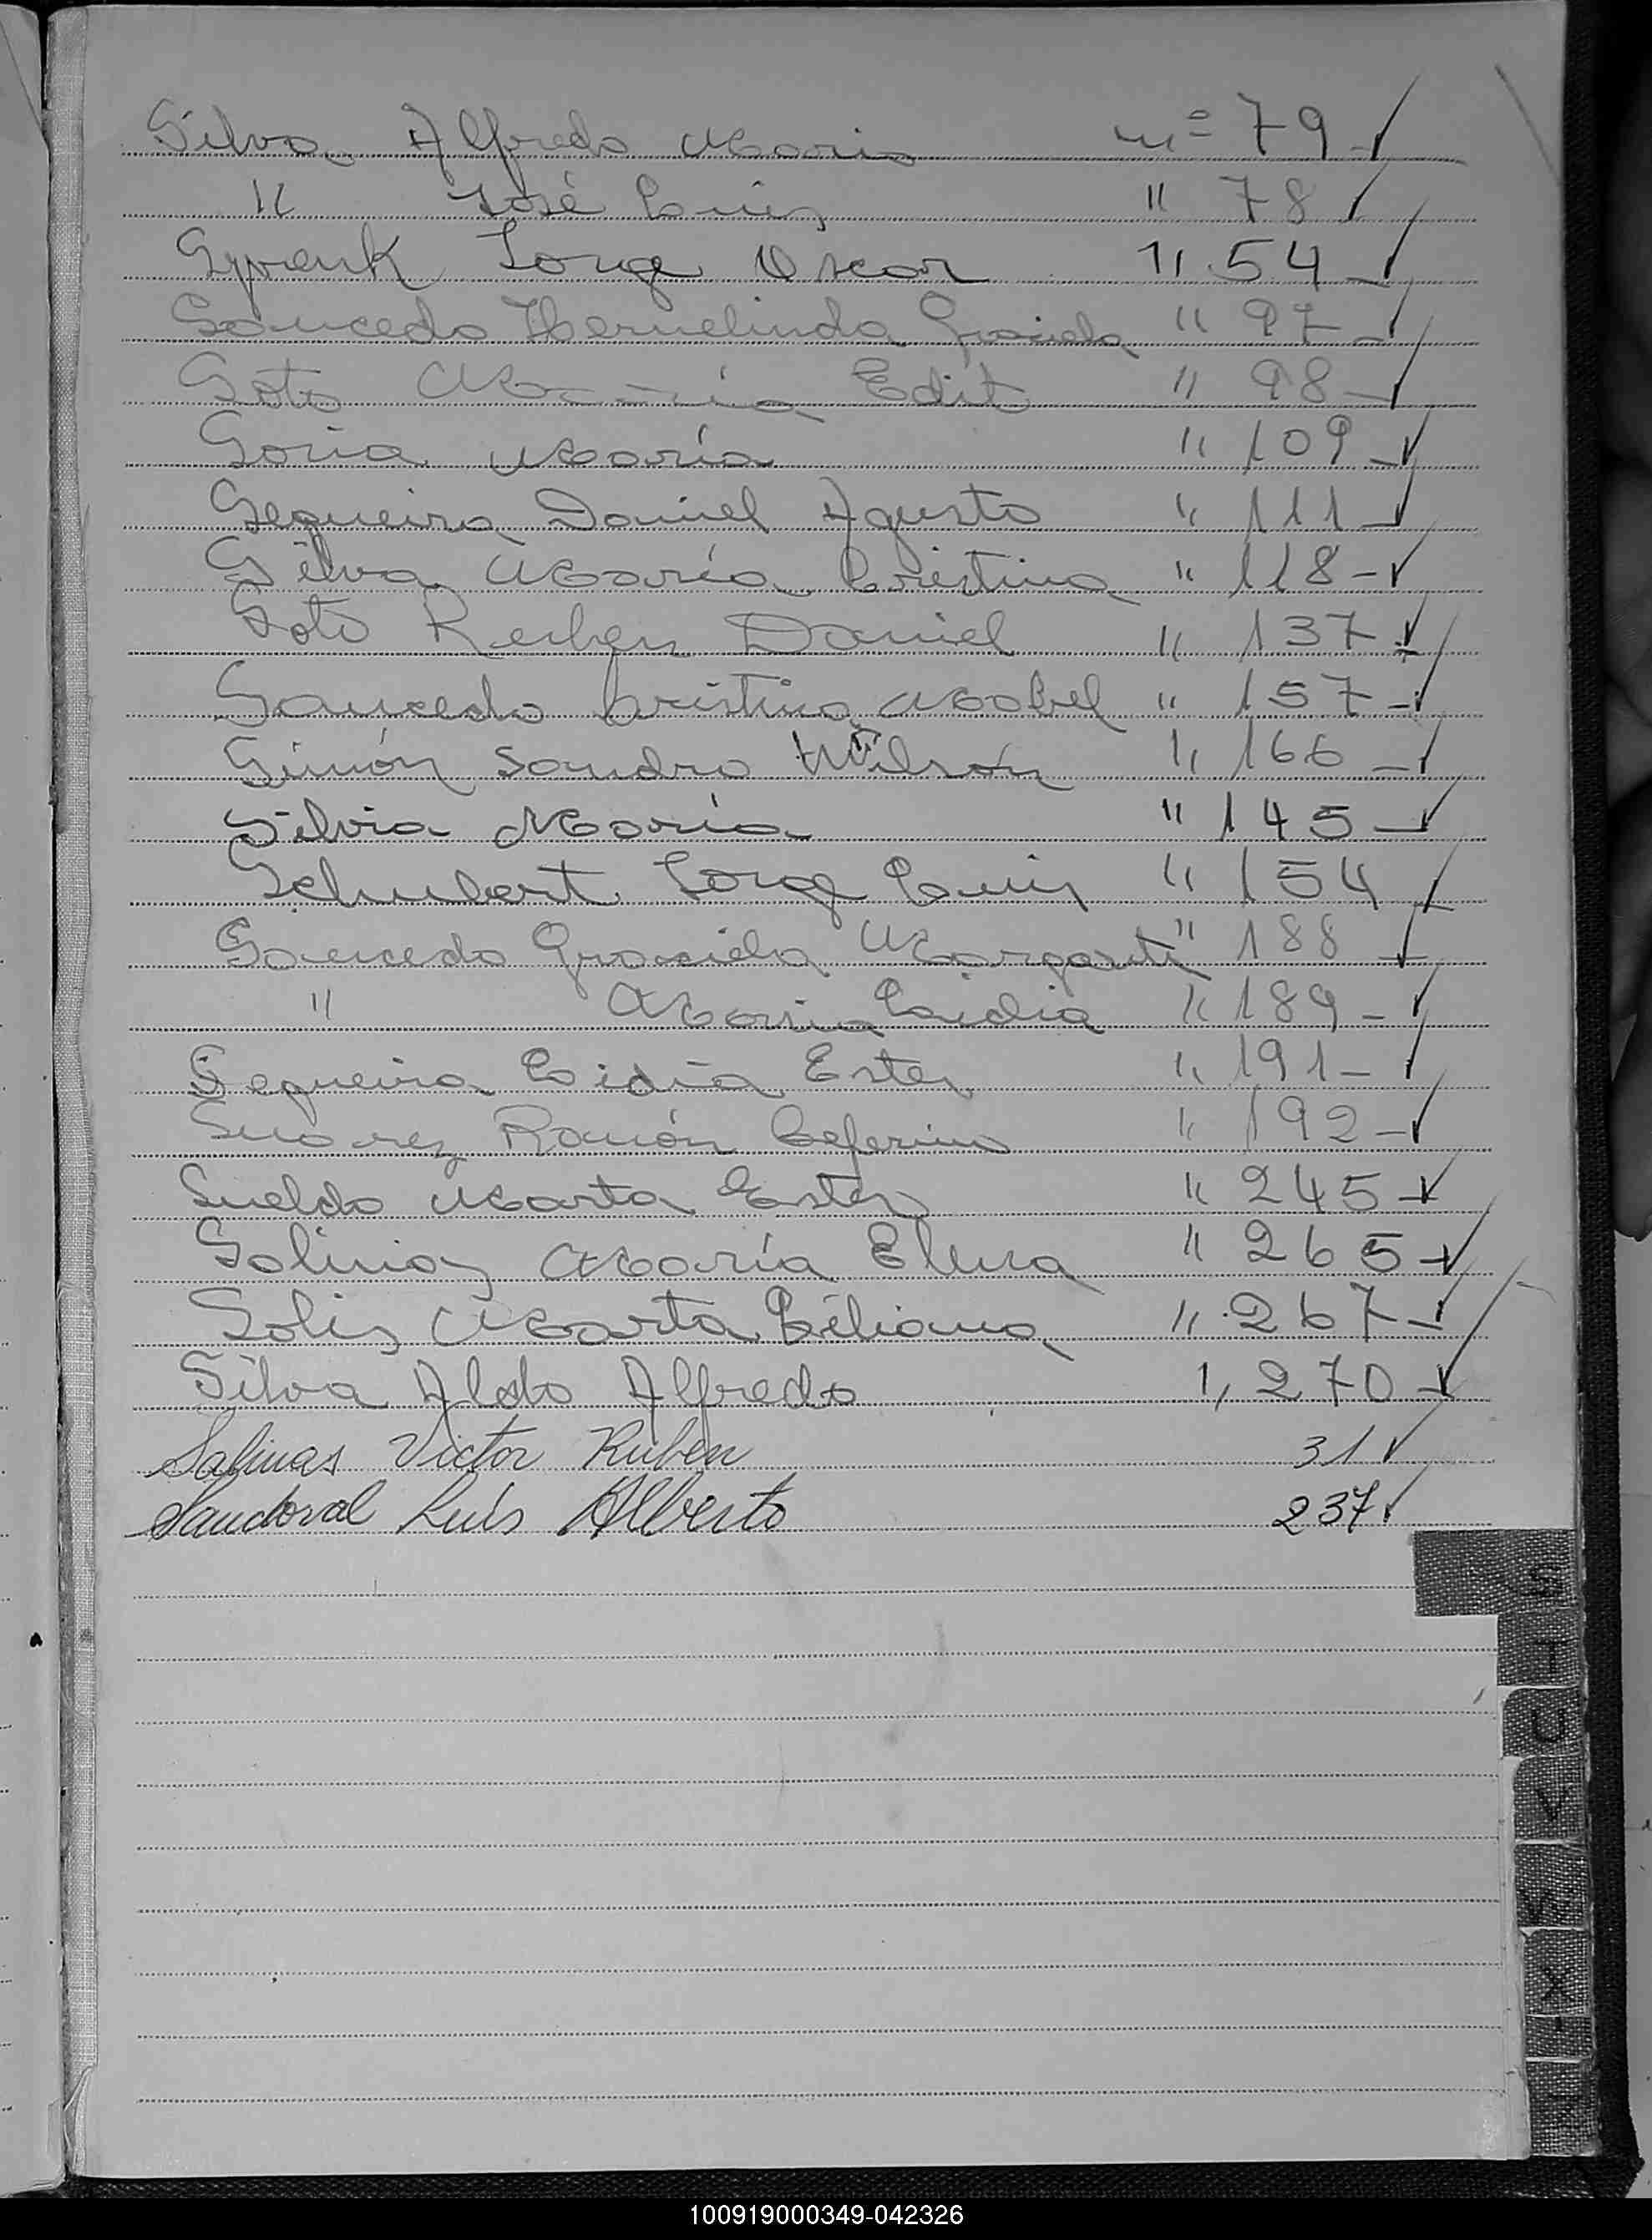 Silva Alfredo Mario nº 79
" José Luis " 78
Jorge Oscar " 54
Saucedo Hermelinda Graciela " 97
Soto María Edit " 98
Soria María " 109
Sequeira Daniel Agusto " 111
Silva María Cristina " 118
Soto Ruben Daniel " 137
Saucedo Cristina Mabel " 157
Simón Sandro Wilson " 166
Silvia María " 145
Schubert Jorge Luis " 154
Saucedo Graciela Margarita " 188
" María Lidia " 189
Sequeira Lidia Ester " 191
Suarez Ramón Ceferino " 192
Sueldo Marta Ester " 245
Salinas María Elena " 265
Solis Marta Liliana " 267
Silva Aldo Alfredo " 270
Salinas Victor Ruben 31
Sandoval Luis Alberto 237
S
T
U
V
X
100919000349-042326